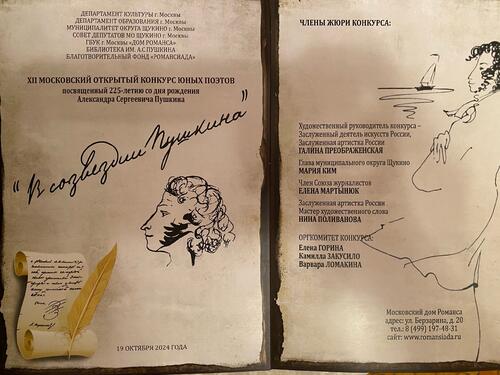 ДЕПАРТАМЕНТ КУЛЬТУРЫ г. Москвы
ДЕПАРТАМЕНТ ОБРАЗОВАНИЯ г. Москвы
МУНИЦИПАЛИТЕТ ОКРУГА ЩУКИНО г. Москвы
СОВЕТ ДЕПУТАТОВ МО ЩУКИНО г. Москвы
ГБУК г. Москвы «ДОМ РОМАНСА»
БИБЛИОТЕКА ИМ. А.С.ПУШКИНА
БЛАГОТВОРИТЕЛЬНЫЙ ФОНД «РОМАНСИАДА»
XII МОСКОВСКИЙ ОТКРЫТЫЙ КОНКУРС ЮНЫХ ПОЭТОВ
посвященный 225-летию со дня рождения
Александра Сергеевича Пушкина
"В созвездии Пушкина"
19 ОКТЯБРЯ 2024 ГОДА
ЧЛЕНЫ ЖЮРИ КОНКУРСА:
Художественный руководитель конкурса –
Заслуженный деятель искусств России,
Заслуженная артистка России
ГАЛИНА ПРЕОБРАЖЕНСКАЯ
Глава муниципального округа Щукино
МАРИЯ КИМ
Член Союза журналистов
ЕЛЕНА МАРТЫНЮК
Заслуженная артистка России
Мастер художественного слова
НИНА ПОЛИВАНОВА
ОРГКОМИТЕТ КОНКУРСА:
Елена ГОРИНА
Камилла ЗАКУСИЛО
Варвара ЛОМАКИНА
Московский дом Романса
адрес: ул. Берзарина, д. 20
тел.: 8 (499) 197-48-31
сайт: www.romansiada.ru